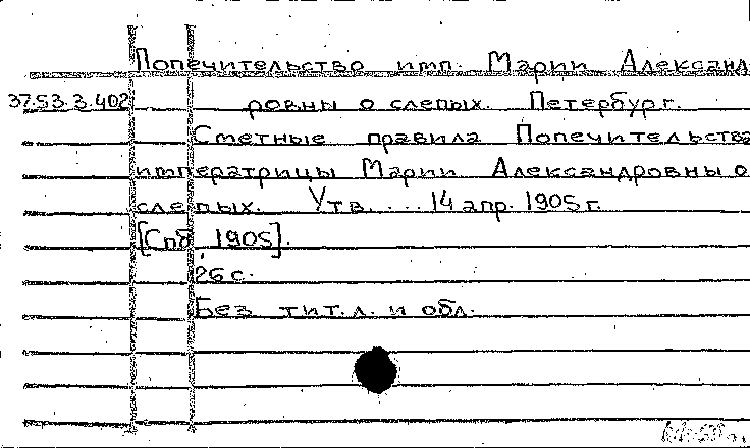 Попечительство имп. Марии Александ
37.53.3.402 ровны о слепых. Петербург.
Сметные правила Попечительства
императрицы Марии Александровны о
слепых. Утв. ... 14 апр. 1905 г.
[Спб, 1905].
26 с.
Без тит. л. и обл.